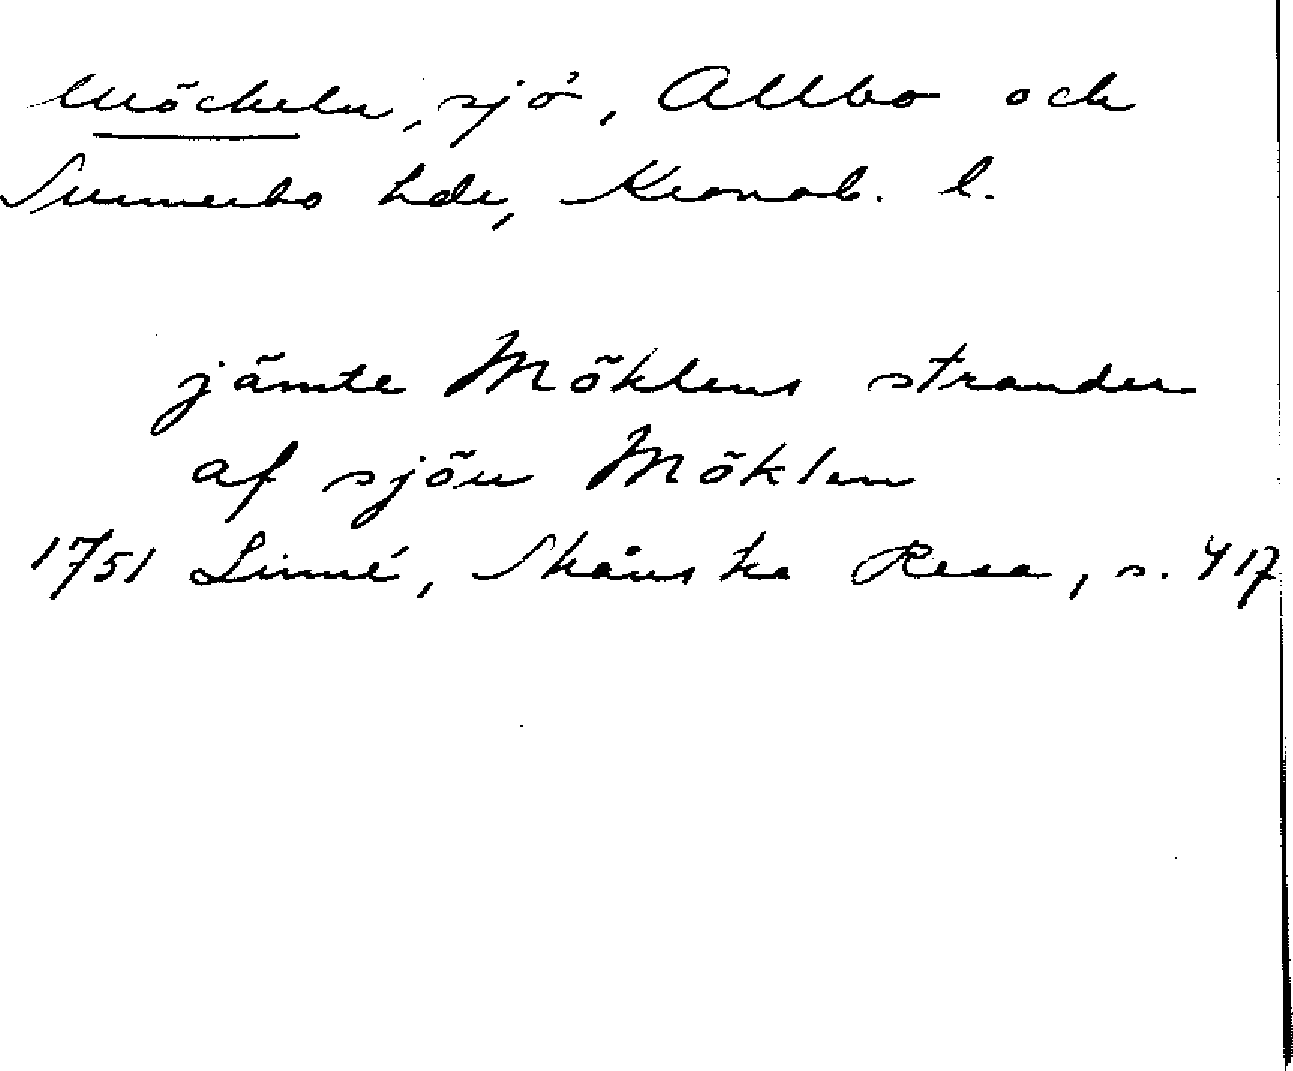 Möckeln, sjö, Allbo och
Sunnerbo hdr, Kronob. l.
jämte Möklens stranden
af sjön Möklen
1751 Linné, Skånska Resa, s. 417